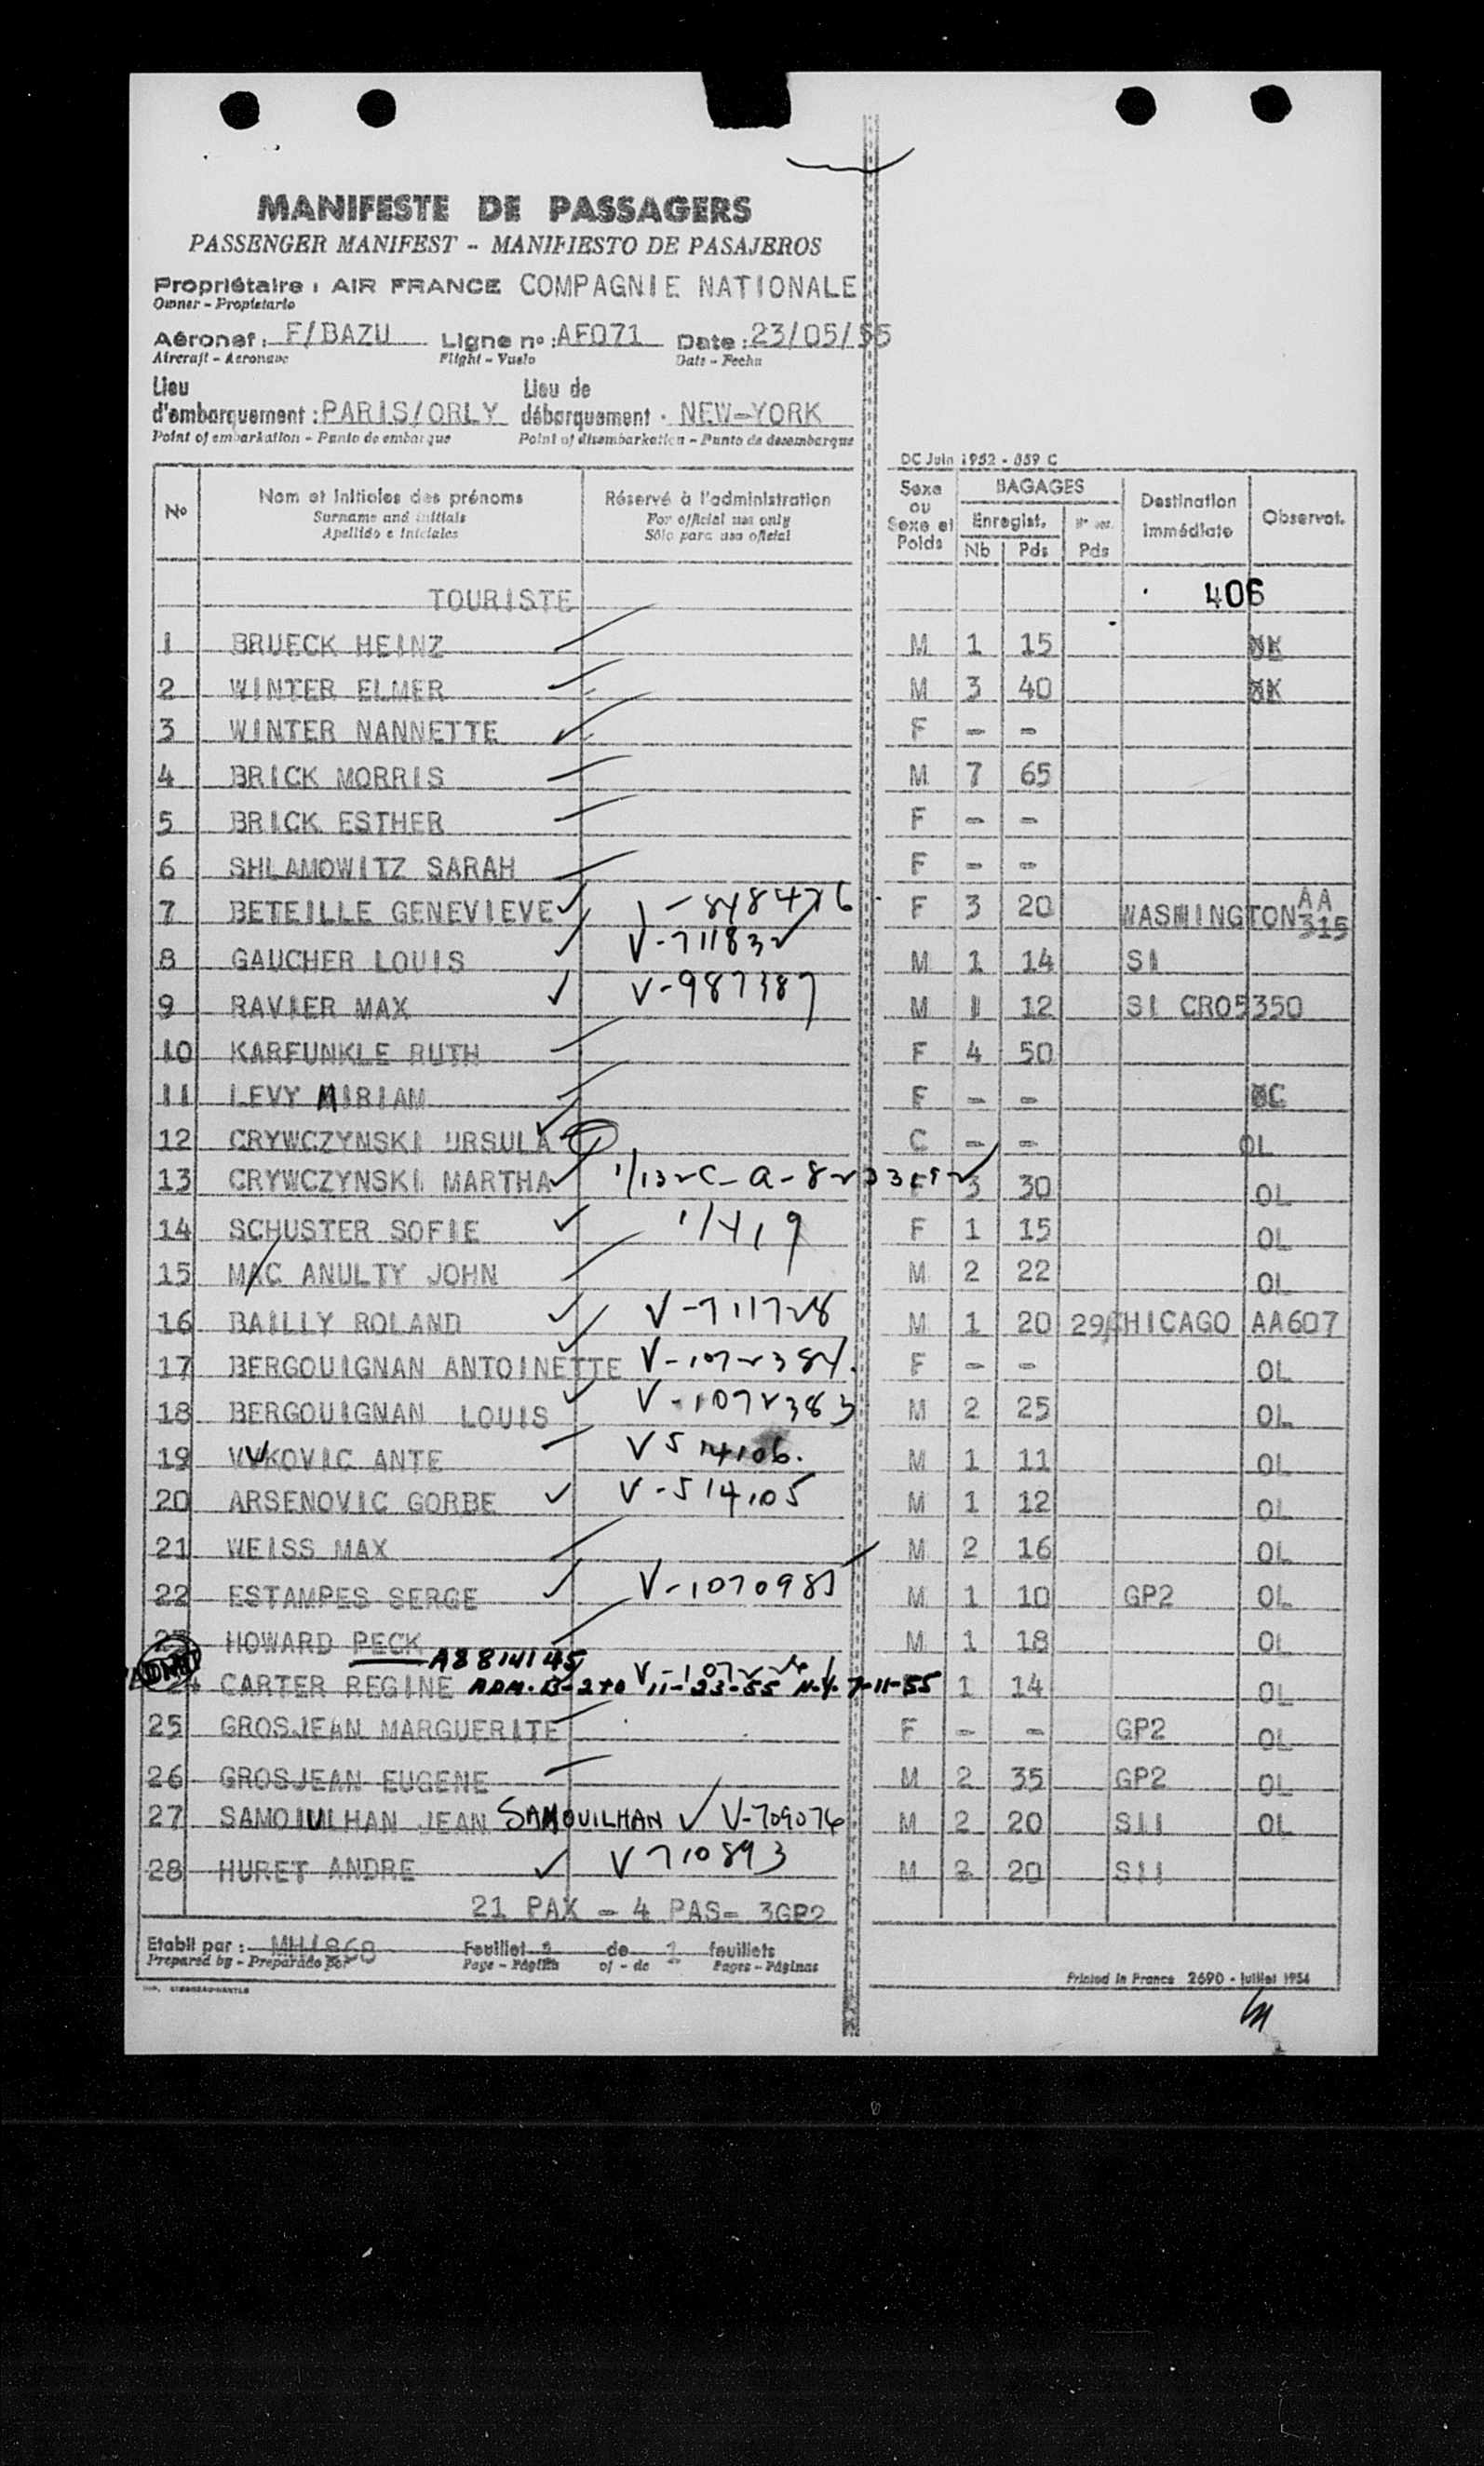 MANIFESTE DE PASSAGERS
PASSENGER MANIFEST - MANIFIESTO DE PASAJEROS
Propriétaire : AIR FRANCE COMPAGNIE NATIONALE
Owner - Propietario
Aéronef : F/BAZU Ligne nº : AF071 Date : 23/05/55
Aircraft - Aeronave Flight - Vuelo Date - Fecha
Lieu d'embarquement : PARIS/ORLY Lieu de débarquement : NEW-YORK
Point of embarkation - Punto de embarque Point of disembarkation - Punto de desembarque
DC Juin 1952 - 859 C
Nº Nom et initiales des prénoms Réservé à l'administration Sexe ou Sexe et Poids BAGAGES Destination immédiate Observat.
Surname and initials For official use only Enregist.
Apellido e iniciales Sólo para uso oficial Nb Pds Pds
TOURISTE 406
1 BRUECK HEINZ M 1 15
2 WINTER ELMER M 3 40
3 WINTER NANNETTE F - -
4 BRICK MORRIS M 7 65
5 BRICK ESTHER F - -
6 SHLAMOWITZ SARAH F - -
7 BETEILLE GENEVIEVE F 3 20 WASHINGTON AA 315
8 GAUCHER LOUIS V-711832 M 1 14 SI
9 RAVIER MAX V-987387 M 1 12 SI CRO5350
10 KARFUNKLE RUTH F 4 50
11 LEVY MIRIAM F - -
12 CRYWCZYNSKI URSULA C - - OL
13 CRYWCZYNSKI MARTHA 3 30 OL
14 SCHUSTER SOFIE F 1 15 OL
15 MAC ANULTY JOHN M 2 22 OL
16 BAILLY ROLAND V-711728 M 1 20 29 CHICAGO AA607
17 BERGOUIGNAN ANTOINETTE V-1072384 F - - OL
18 BERGOUIGNAN LOUIS V-1072383 M 2 25 OL
19 VUKOVIC ANTE V514106. M 1 11 OL
20 ARSENOVIC GORBE V-514105 M 1 12 OL
21 WEISS MAX M 2 16 OL
22 ESTAMPES SERGE M 1 10 GP2 OL
23 HOWARD PECK M 1 18 OL
A8814145
24 CARTER REGINE ADM. B-2 TO 11-23-55 N.Y. 7-11-55 1 14 OL
25 GROSJEAN MARGUERITE F - - GP2 OL
26 GROSJEAN EUGENE M 2 35 GP2 OL
27 SAMOIULHAN JEAN SAMOUILHAN V-709076 M 2 20 SII OL
28 HURET ANDRE V710893 M 2 20 SII
21 PAX - 4 PAS- 3GP2
Etabli par : Feuillet de feuillets
Prepared by - Preparado por Page - Página of - de Pages - Páginas
Printed in France 2690 - Juillet 1954